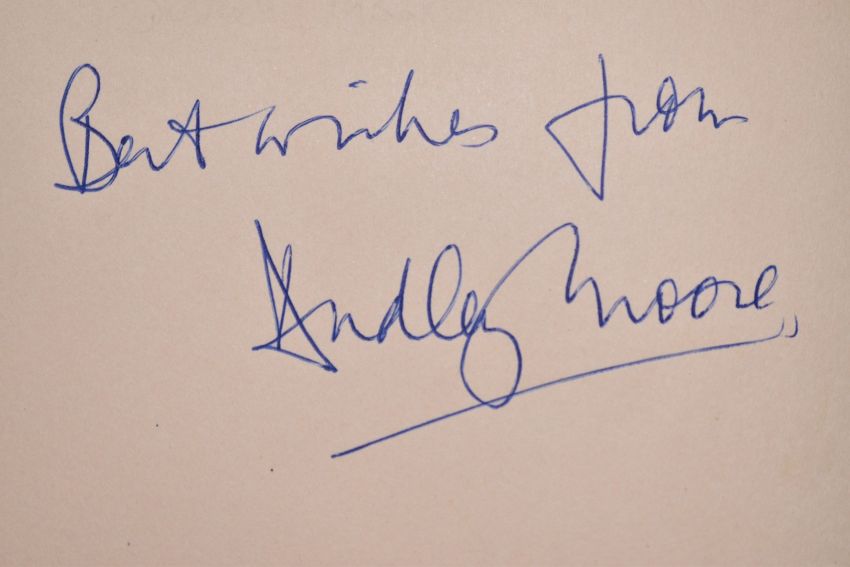 Best wishes from
Dudley Moore